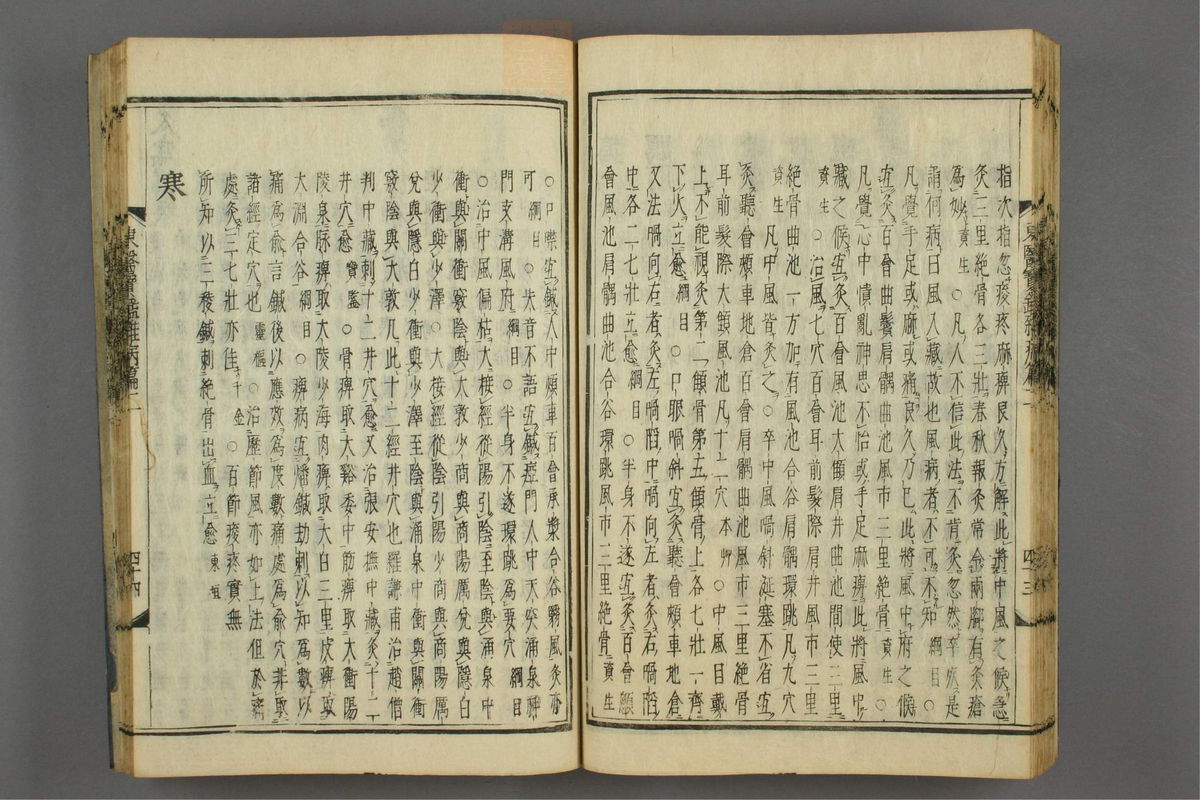 指次指忽痠疼麻痺良久方解此將中風之候急
灸三里絶骨各三壯春秋報灸常令兩脚有灸瘡
為妙資生○凡人不信此法不肯灸忽然卒死是
謂何病曰風入藏故也風病者不可不知綱目○
凡覺手足或麻或痛良久乃已此將風中府之候
宜灸百會曲鬢肩髃曲池風市三里絶骨資生○
凡覺心中憒亂神思不怡或手足麻痺此將風中
藏之候宜灸百會風池大顀肩井曲池間使三里
資生○治風七穴百會耳前髮際肩井風市三里
絶骨曲池一方加有風池合谷肩髃環跳凡九穴
資生凡中風皆灸之○卒中風喎斜涎塞不省宜
灸聽會頰車地倉百會肩髃曲池風市三里絶骨
耳前髮際大顀風池凡十二穴本○中風目戴
上不能視灸第二顀骨第五顀骨上各七壯一齊
下火立愈綱目○口眼喎斜宜灸聽會頰車地倉
又法喎向右者灸左喎陷中喎向左者灸右喎陷
中各二七壯立愈綱目○半身不遂宜灸百會顖
會風池肩髃曲池合谷環跳風市三里絶骨資生
東醫寶鑑雜病篇二
四十三
○口噤宜鍼人中頰車百會承漿合谷翳風灸亦
可綱目○失音不語宜鍼瘂門人中天突涌泉神
門支溝風府綱目○半身不遂環跳為要穴綱目
○治中風偏枯大接經從陽引陰至陰與涌泉中
衝與關衝竅陰與大敦少商與商陽厲兌與隱白
少衝與少澤○大接經從陰引陽少商與商陽厲
兌與隱白少衝與少澤至陰與涌泉中衝與關衝
竅陰與大敦凡此十二經井穴也羅謙甫治趙僧
判中藏刺十二井穴愈又治張安撫中藏灸十二
井穴愈寶鑑○骨痺取太谿委中筋痺取太衝陽
陵泉脉痺取大陵少海肉痺取太白三里皮痺取
太淵合谷綱目○痺病宜燔鍼劫刺以知為數以
痛為兪言鍼後以應效為度數痛處為兪穴非取
諸經定穴也靈樞○治歷節風亦如上法但於痛
處灸三七壯亦佳千金○百節痠疼實無
所知以三稜鍼刺絶骨出血立愈東垣
寒
東醫寶鑑雜病篇二
四十四